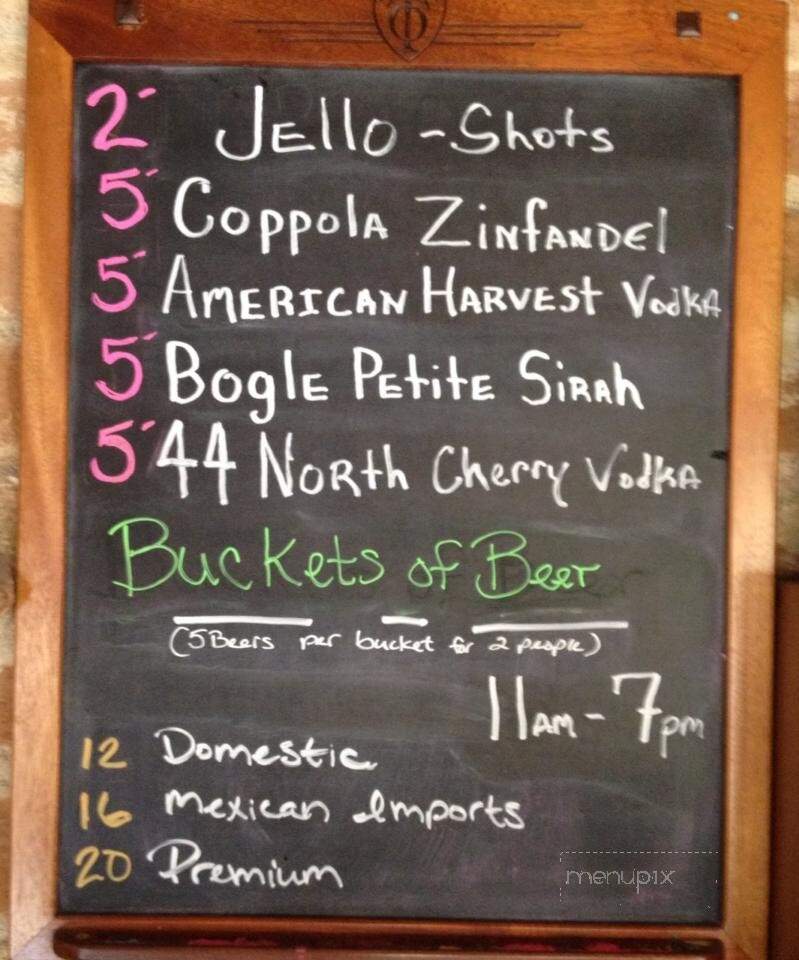 2- JEllO - Shots
5- CoppolA ZinfANDEl
5- AMERICAN HARVEST VodkA
5- BoglE PEtitE SiRAh
5- 44 NoRth Cherry VodkA
Buckets of Beer
(5 Beers per bucket for 2 people)
11AM - 7pm
12 Domestic
16 Mexican Imports
20 Premium
menupix